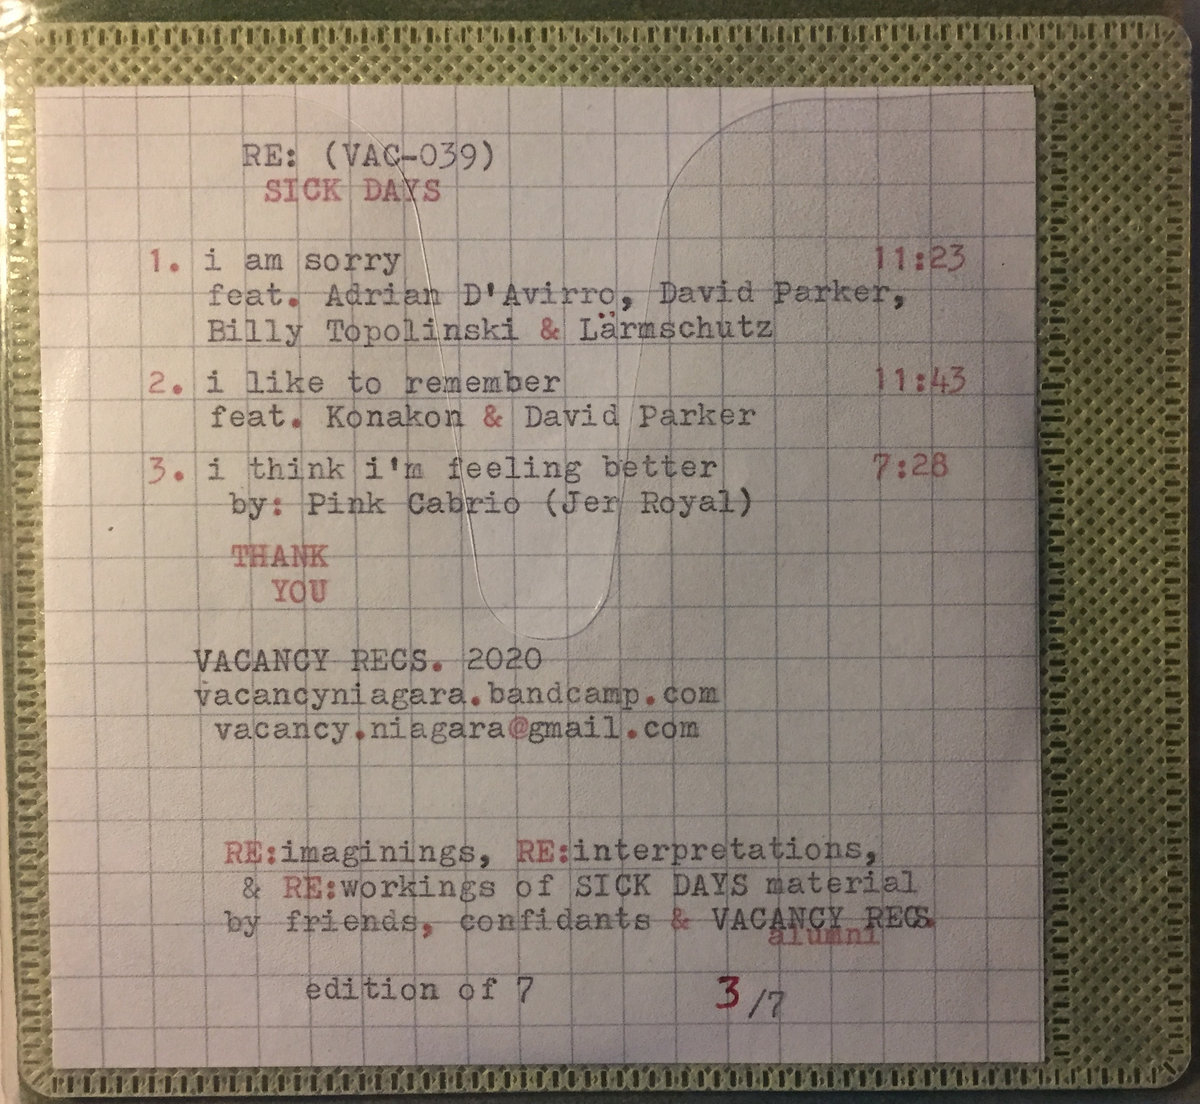 RE: (VAC-039)
SICK DAYS
1. i am sorry 11:23
feat. Adrian D'Avirro, David Parker,
Billy Topolinski & Lärmschutz
2. i like to remember 11:43
feat. Konakon & David Parker
3. i think i'm feeling better 7:28
by: Pink Cabrio (Jer Royal)
THANK
YOU
VACANCY RECS. 2020
vacancyniagara.bandcamp.com
vacancy.niagara@gmail.com
RE:imaginings, RE:interpretations,
& RE:workings of SICK DAYS material
by friends, confidants & VACANCY RECS.
alumni
edition of 7 3/7